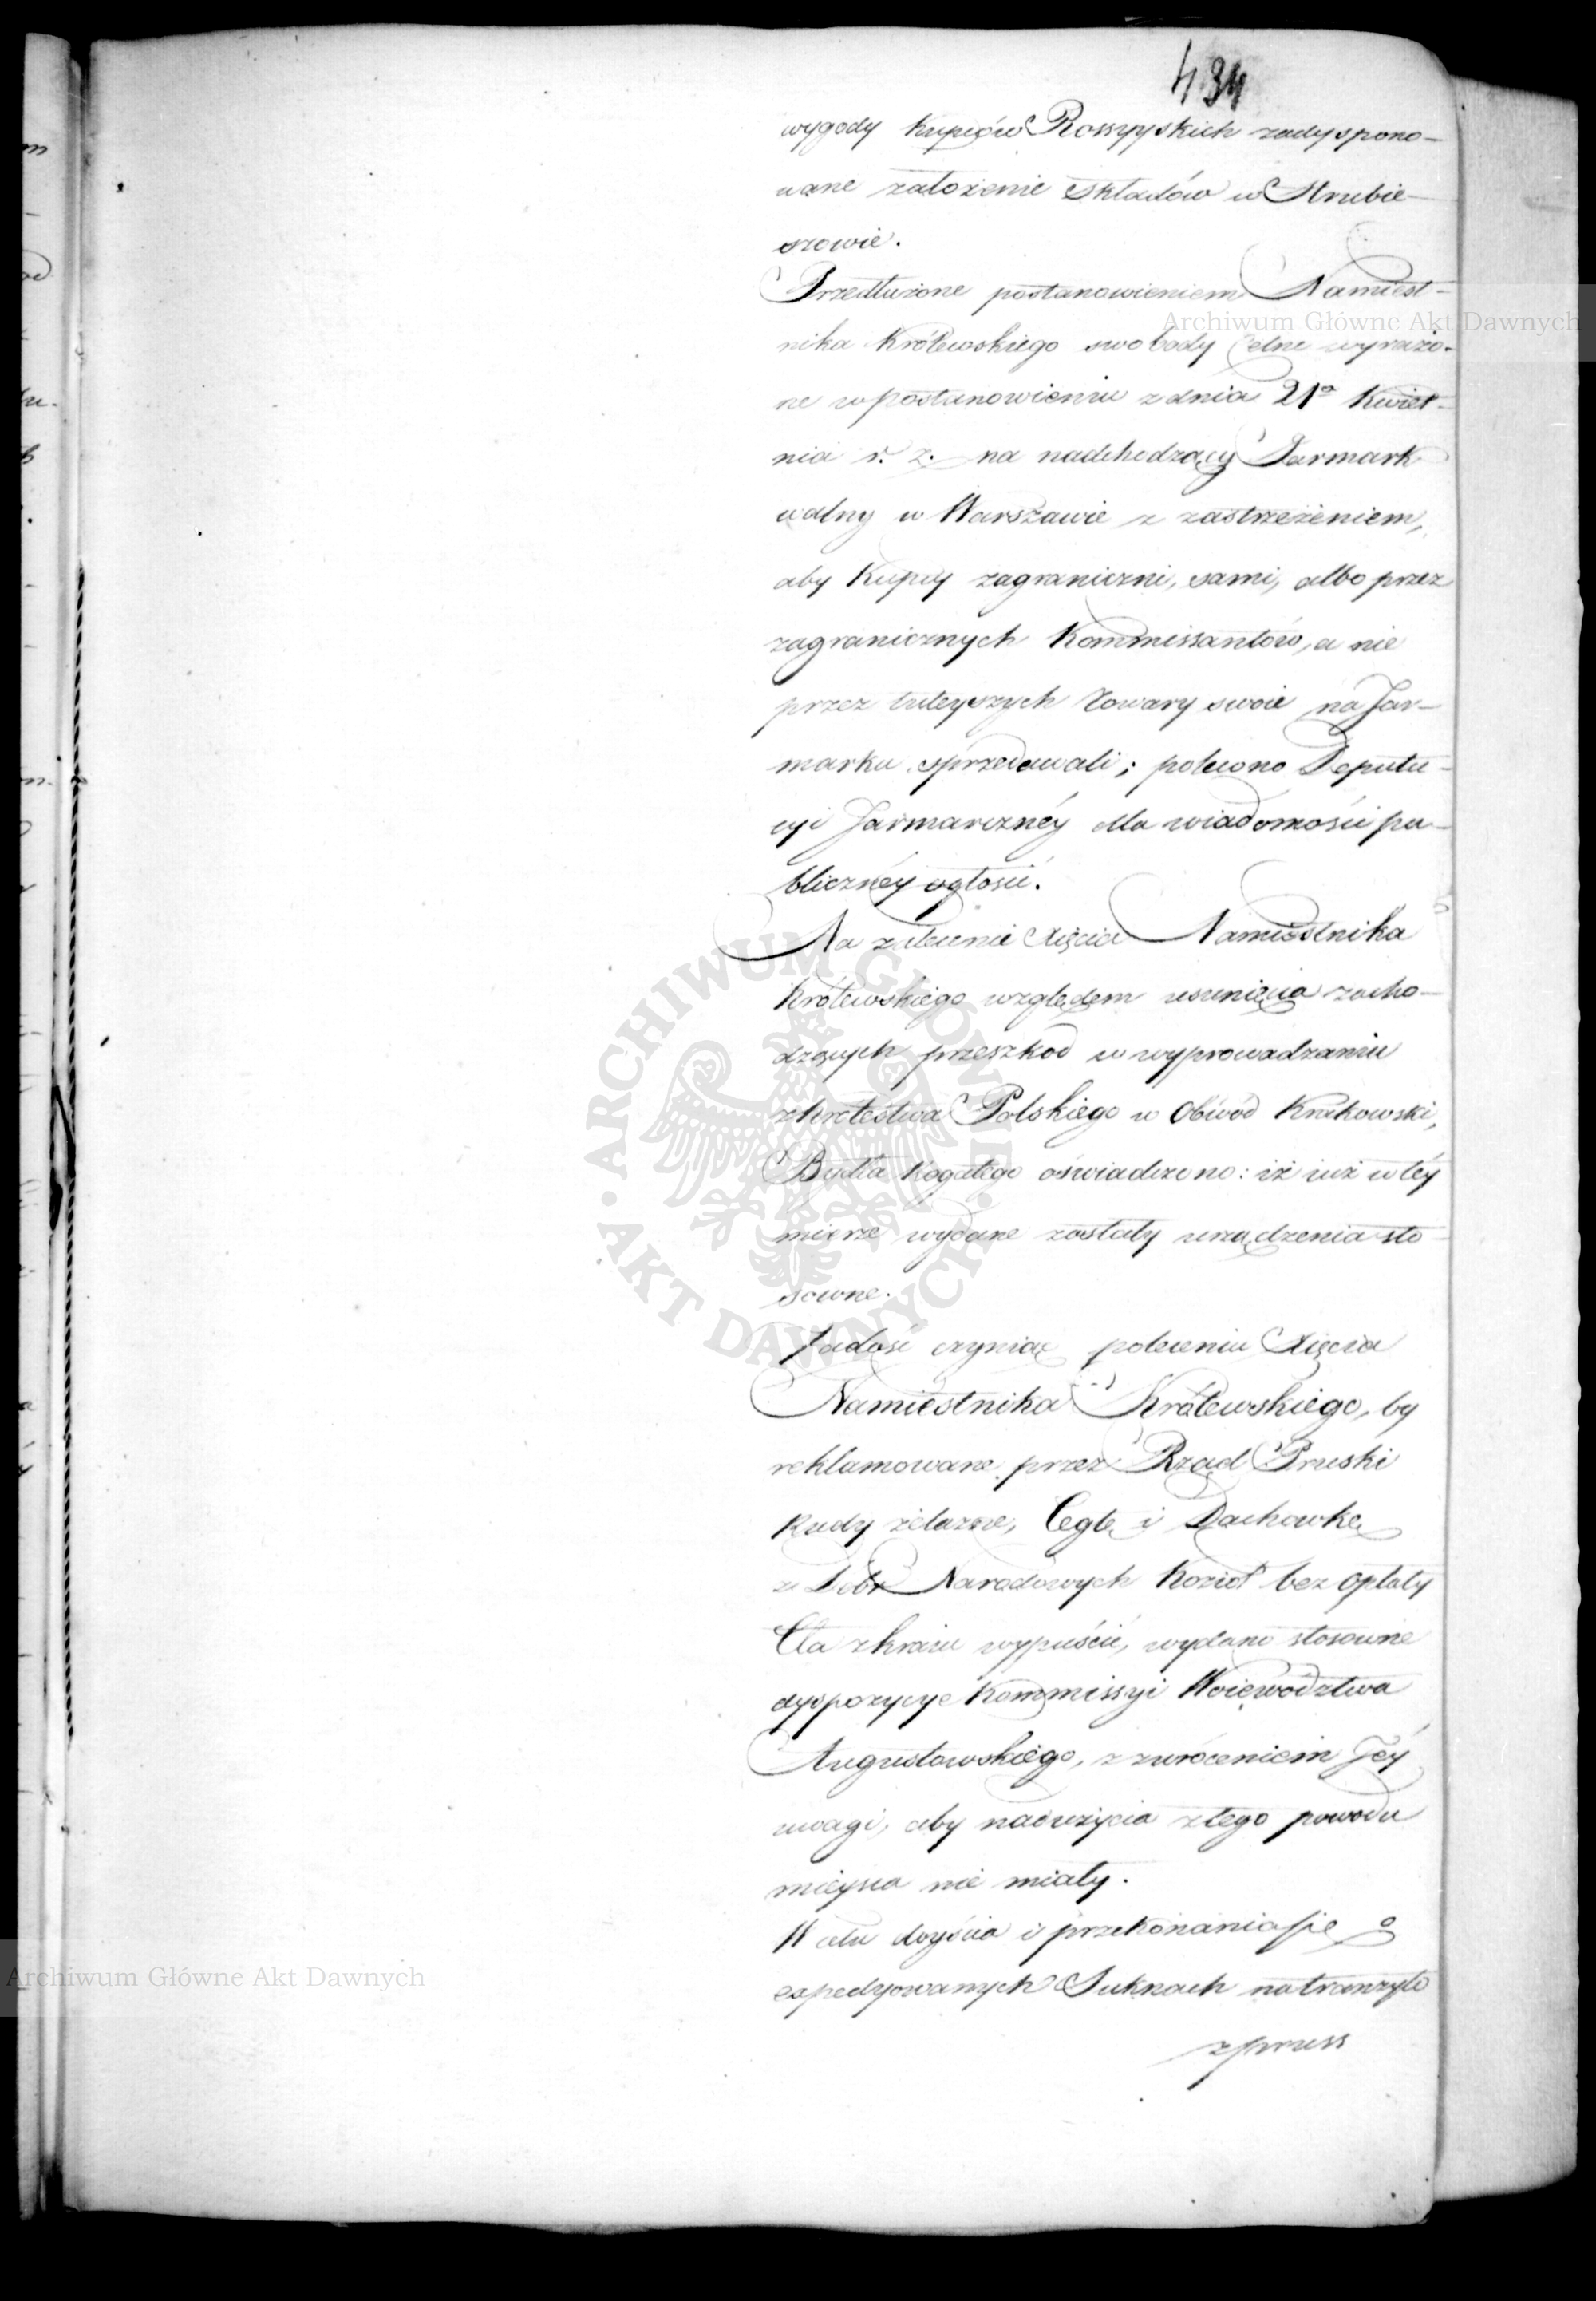 434
wygody Kupców Rossyyskich zadyspono-
wane założenie składów w Hrubie-
szowie.
Przedłużone postanowieniem Namiest-
nika Królewskiego swobody Celne wyrażo-
ne w postanowieniu z dnia 21º Kwiet-
nia r. z. na nadchodzący Jarmark
walny w Warszawie z zastrzeżeniem,
aby Kupcy zagraniczni, sami, albo przez
zagranicznych Kommissantów, a nie
przez tuteyszych Towary swoie na Jar-
marku sprzedawali; polecono Deputa-
cyi Jarmarcznéy dla wiadomości pu-
blicznéy ogłosić.
Na zlecenie Xięcia Namiestnika
Królewskiego względem usunięcia zacho-
dzących przeszkod w wyprowadzaniu
z Królestwa Polskiego w Obwód Krakowski,
Bydła Rogatego oświadczono: iż iuż w téy
mierze wydane zostały urządzenia sto-
sowne.
Zadosić czyniąc poleceniu Xięcia
Namiestnika Królewskiego, by
reklamowane przez Rząd Pruski
Rudy żelazne, Cegłę i Dachowkę
z Dobr Narodowych Kozioł bez opłaty
Cła z kraiu wypuścić, wydano stosowne
dyspozycye Kommissyi Woiewództwa
Augustowskiego, z zwróceniem Jéy
uwagi, aby nadużycia z tego powodu
mieysca nie miały.
W celu doyścia i przekonania się o
expedyowanych Suknach na tranzyto
z pruss
Archiwum Główne Akt Dawnych
ARCHIWUM GŁÓWNE · AKT DAWNYCH ·
Archiwum Główne Akt Dawnych